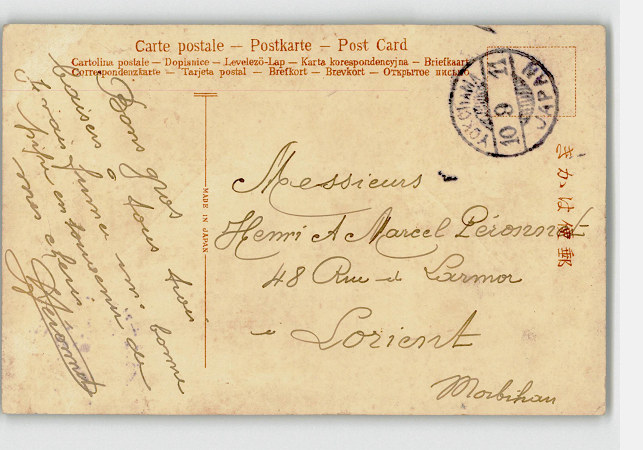 Carte postale — Postkarte — Post Card
Cartolina postale — Dopisnice — Levelező-Lap — Karta korespondencyjna — Briefkaart
Correspondenzkarte — Tarjeta postal — Brefkort — Brevkort — Открытое письмо
YOKOHAMA
10 9 11
JAPAN
きかは便郵
MADE IN JAPAN
Bons gros
baisers à tous trois
Je vais fumer une bonne
pipe en souvenir de
mes chéris
HPeronnet
Messieurs
Henri & Marcel Péronnet
48 Rue de Larmor
à Lorient
Morbihan